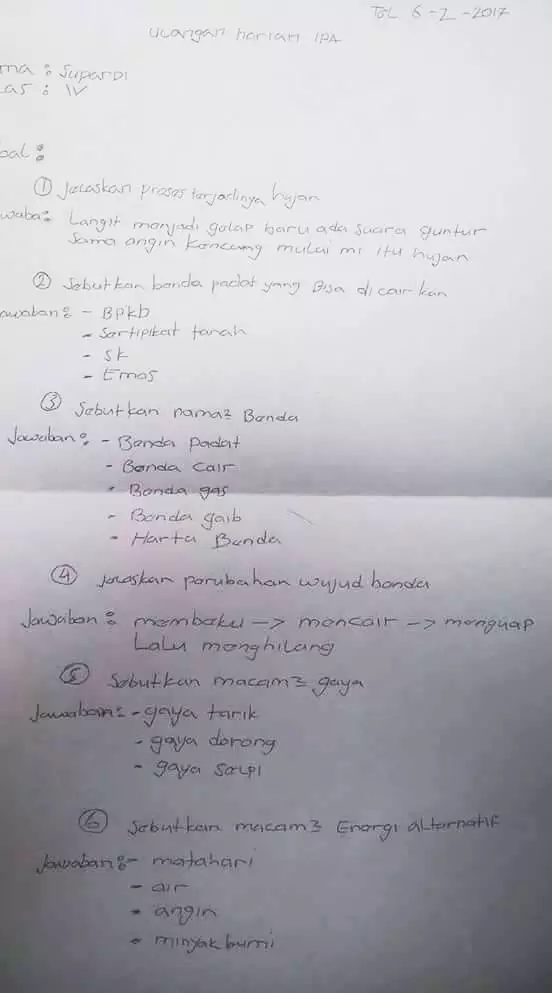 TGL 6-2-2017
Ulangan harian IPA
ma : Supardi
as : IV
oal :
① Jelaskan proses terjadinya hujan
waba: Langit menjadi gelap baru ada suara guntur
sama angin kencang mulai mi itu hujan
② Sebutkan benda padat yang Bisa di cair kan
awaban : - BPkb
- Sertipikat tanah
- Sk
- Emas
③ Sebutkan nama2 Benda
Jawaban : - Benda padat
- Benda cair
- Benda gas
- Benda gaib
- Harta Benda
④ Jelaskan perubahan wujud benda
Jawaban : membeku -> mencair -> menguap
Lalu menghilang
⑤ Sebutkan macam2 gaya
Jawaban : - gaya tarik
- gaya dorong
- gaya Selpi
⑥ Sebutkan macam2 Energi alternatif
Jawaban : - matahari
- air
- angin
- minyak bumi